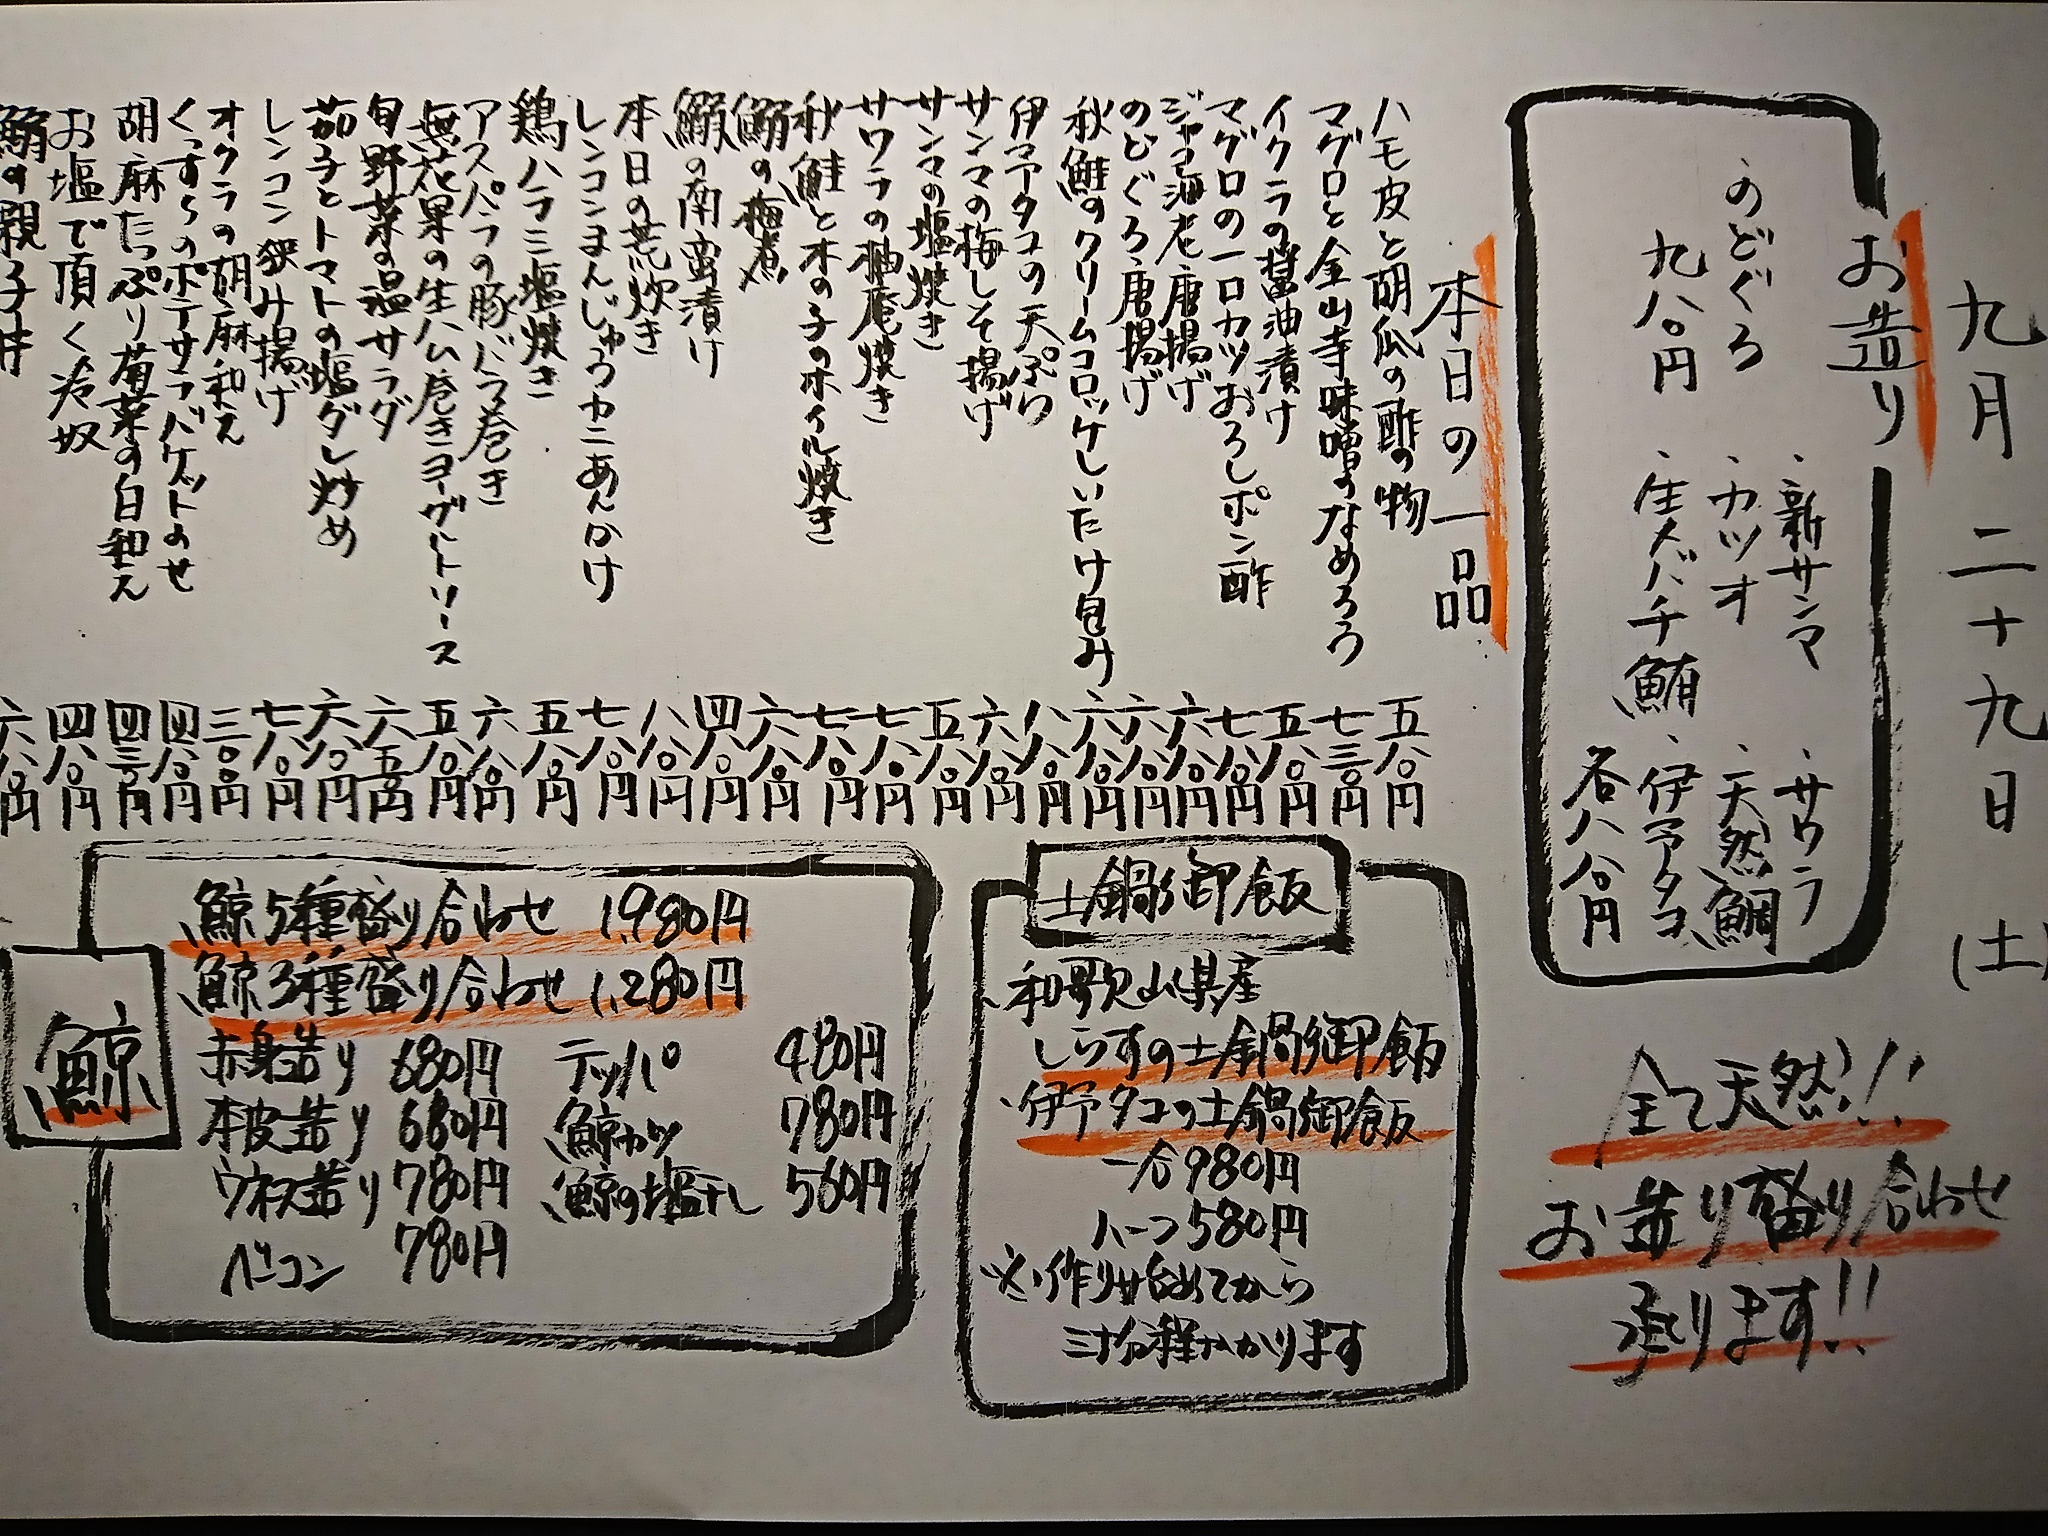 九月二十九日(土)
お造り
・新サンマ ・サワラ
・のどぐろ ・カツオ ・天然鯛
九八〇円 ・生メバチ鮪 ・伊予タコ
各八八〇円
全て天然!!
お造り盛り合わせ
承ります!!
本日の一品
ハモ皮と胡瓜の酢の物 五八〇円
マグロと金山寺味噌のなめろう 七三〇円
イクラの醤油漬け 五八〇円
マグロの一口カツおろしポン酢 七八〇円
ジャコ海老唐揚げ 六八〇円
のどぐろ唐揚げ 六八〇円
秋鮭のクリームコロッケしいたけ包み 六八〇円
伊予タコの天ぷら 八八〇円
サンマの梅しそ揚げ 六八〇円
サンマの塩焼き 五八〇円
サワラの柚庵焼き 七八〇円
秋鮭と木の子のホイル焼き 七八〇円
鰯の梅煮 六八〇円
鰯の南蛮漬け 四八〇円
本日の荒炊き 八八〇円
レンコンまんじゅうカニあんかけ 七八〇円
鶏ハラミ塩焼き 五八〇円
アスパラの豚バラ巻き 六八〇円
無花果の生ハム巻きヨーグルトソース 五八〇円
旬野菜の温サラダ 六五〇円
茄子とトマトの塩ダレ炒め 六八〇円
レンコン挟み揚げ 七八〇円
オクラの胡麻和え 三〇〇円
のポテサラバケットのせ 四八〇円
胡麻たっぷり菊菜の白和え 四三〇円
お塩で頂く冷奴 四八〇円
の親子丼 六八〇円
土鍋御飯
・和歌山県産
しらすの土鍋御飯
・伊予タコの土鍋御飯
一合980円
ハーフ580円
※作り始めてから
三十分程かかります
鯨
鯨5種盛り合わせ 1,980円
鯨3種盛り合わせ 1,280円
赤身造り 680円 テッパ 480円
本皮造り 680円 鯨カツ 780円
ウネス造り 780円 鯨の塩干し 560円
ベーコン 780円